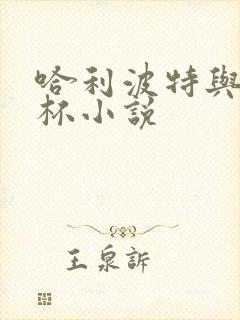 哈利波特與
杯小說
王泉訴